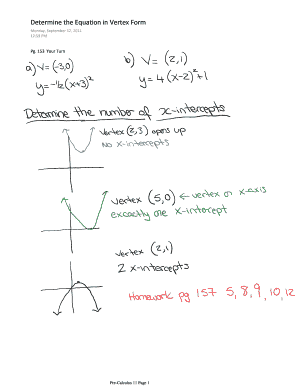 Determine the Equation in Vertex Form
Monday, September 17, 2012
12:59 PM
Pg. 153 Your Turn
a) V= (-3,0)
y=-½(x+3)²
b) V= (2,1)
y=4(x-2)²+1
Determine the number of x-intercepts
vertex (2,3) opens up
no x-intercepts
vertex (5,0) ← vertex on x-axis
exactly one x-intercept
vertex (2,1)
2 x-intercepts
Homework pg 157 5, 8, 9, 10, 12
Pre-Calculus 11 Page 1